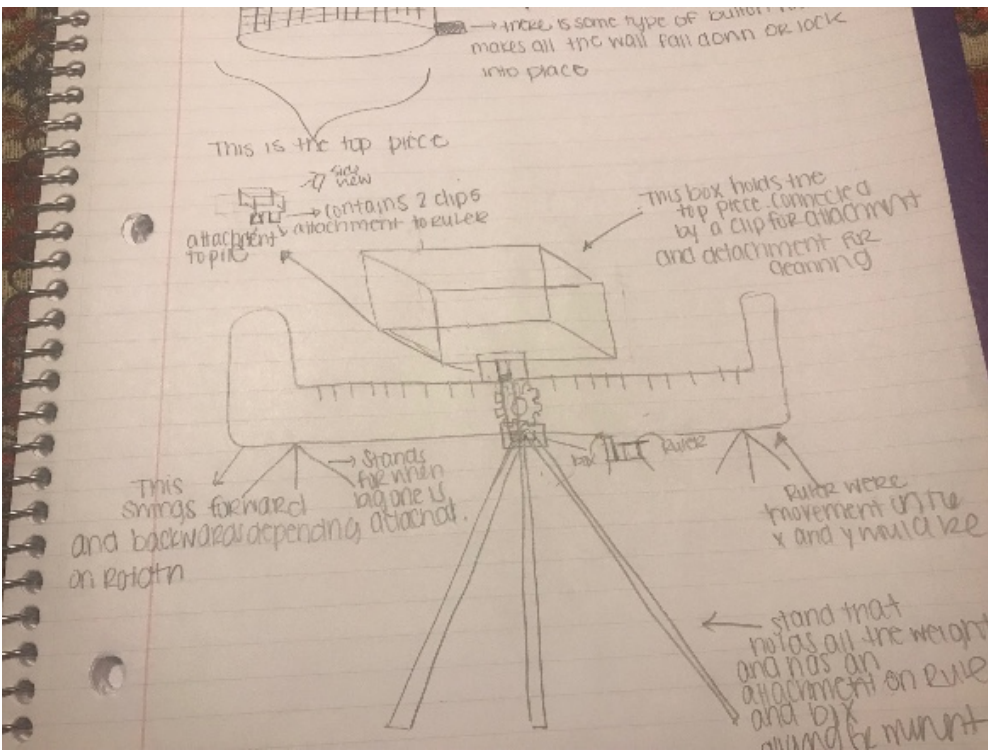 → there is some type of button
makes all the wall fall down or lock
into place
This is the top piece
side
view
→ contains 2 clips
attachment to ruler
attachment
This box holds the
top piece connected
by a clip for attachment
and detachment for
cleaning
→ Stands
for when
big one is
attached.
This
swings forward
and backwards depending
on Rotatn
box
Ruler
Ruler were
movement in the
x and y would be
← stand that
holds all the weight
and has an
attachment on Rule
and box